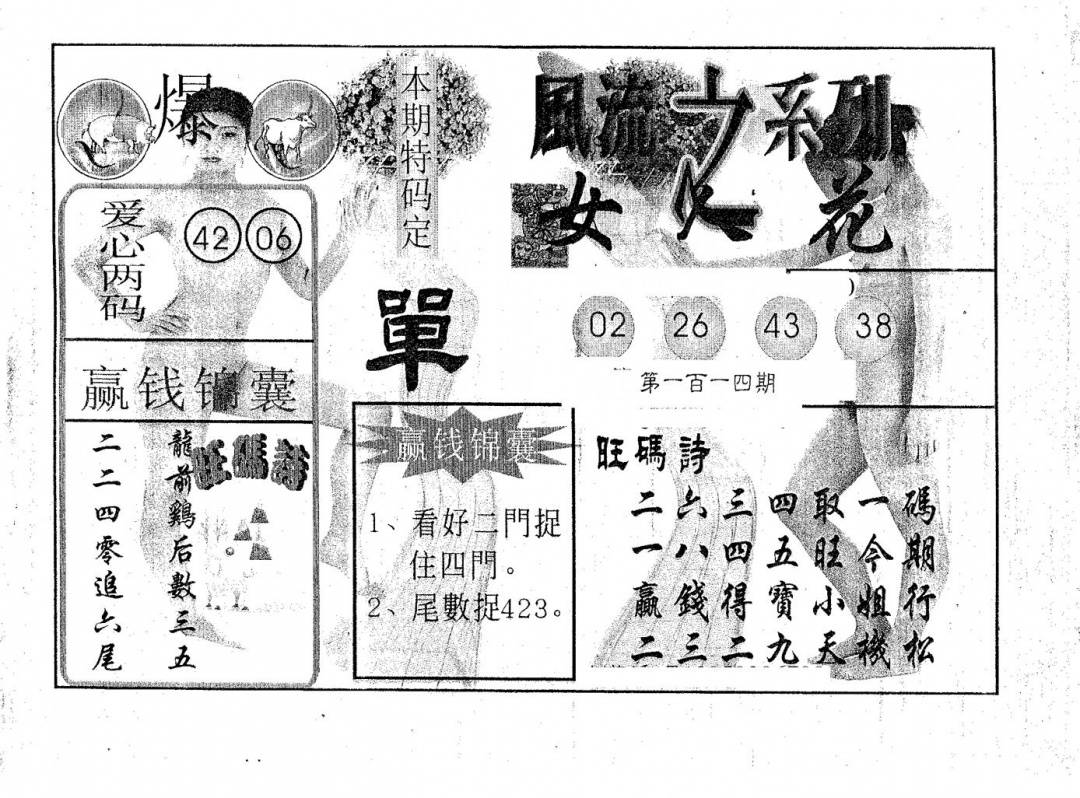 爆
爱心两码
42 06
赢钱锦囊
旺碼詩
龍前鷄后數三五
二二四零追六尾
本期特码定
單
赢钱锦囊
1、看好二門捉
住四門。
2、尾數捉423。
風流之系列
女人花
02 26 43 38
第一百一四期
旺碼詩
二六三四取一碼
一八四五旺今期
贏錢得寶小姐行
二三二九天機松